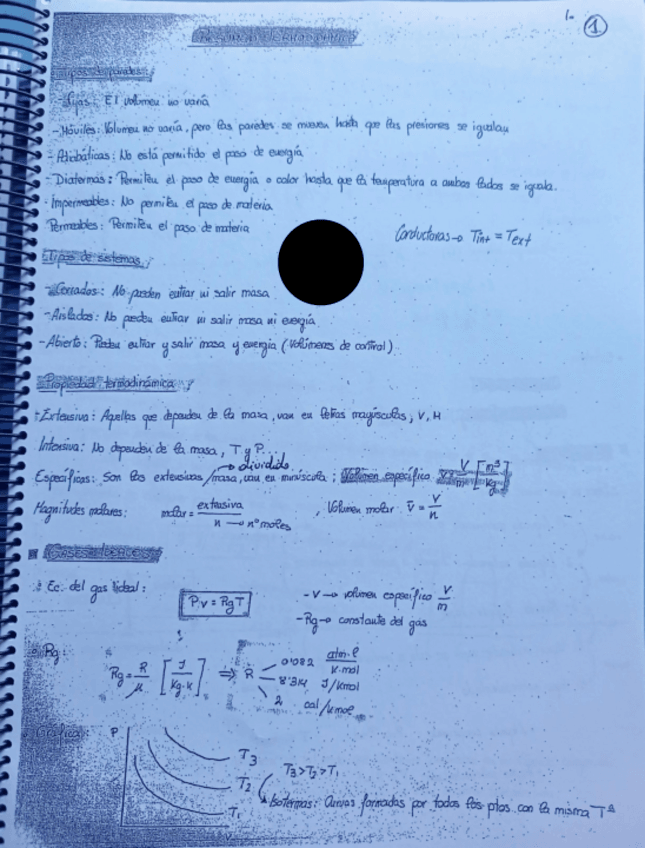 1. ①
Tipos de paredes:
- Fijas: El volumen no varía
- Móviles: Volumen no varía, pero las paredes se mueven hasta que las presiones se igualan
- Adiabáticas: No está permitido el paso de energía
- Diatermas: Permiten el paso de energía o calor hasta que la temperatura a ambos lados se iguala.
- Impermeables: No permiten el paso de materia
Permeables: Permiten el paso de materia
Conductoras → Tint = Text
Tipos de sistemas:
- Cerrados: No pueden entrar ni salir masa
- Aislados: No pueden entrar ni salir masa ni energía
- Abierto: Pueden entrar y salir masa y energía (Volúmenes de control)
Propiedad termodinámica:
- Extensiva: Aquellas que dependen de la masa, van en letras mayúsculas, V, H
Intensiva: No dependen de la masa, T y P.
→ dividido
Específicas: Son las extensivas/masa, van en minúscula; Volumen específico v = V/m [m³/kg]
Magnitudes molares: molar = extensiva / n → nº moles, Volumen molar v̄ = V/n
GASES IDEALES
Ec. del gas ideal: P·v = Rg T
- v → volumen específico V/m
- Rg → constante del gas
Rg:
Rg = R/μ [J/kg·K] ⇒ R
0'082 atm·l/K·mol
8'314 J/Kmol
2 cal/Kmol
Gráfica: P
T3
T2
T1
T3 > T2 > T1
Isotermas: Curvas formadas por todos los ptos con la misma Tª